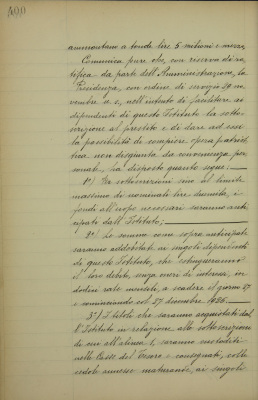 400
ammontano a tonde lire 5 milioni e mezzo.
Comunica pure che, con riserva di ra-
tifica da parte dell'Amministrazione, la
Presidenza, con ordine di servizio 29 no-
vembre u. s., nell'intento di facilitare ai
dipendenti di questo Istituto la sotto-
scrizione al prestito e di dare ad essi
la possibilità di compiere opera patriot-
tica non disgiunta da convenienza per-
sonale, ha disposto quanto segue:
1°) Le sottoscrizioni sino al limite
massimo di nominali lire duemila, i
fondi all'uopo necessari saranno antici-
pati dall'Istituto;
2°) Le somme come sopra anticipate
saranno addebitate ai singoli dipendenti
di questo Istituto, che estingueranno
il loro debito, senza oneri di interessi, in
dodici rate mensili, a scadere il giorno 27
e cominciando col 27 dicembre 1926.
3°) I titoli che saranno acquistati dal
l'Istituto in relazione alle sottoscrizioni
di cui all'alinea 1, saranno custoditi
nelle Casse del Tesoro e consegnati, colle
cedole annesse maturante, ai singoli